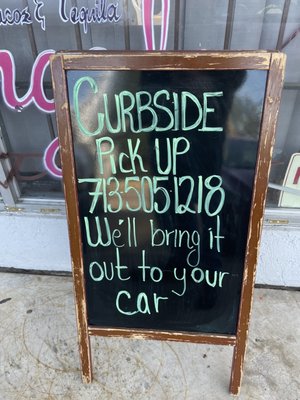 acos & Tequila
CURBSIDE
Pick UP
713.505.1218
We'll bring it
out to your
car